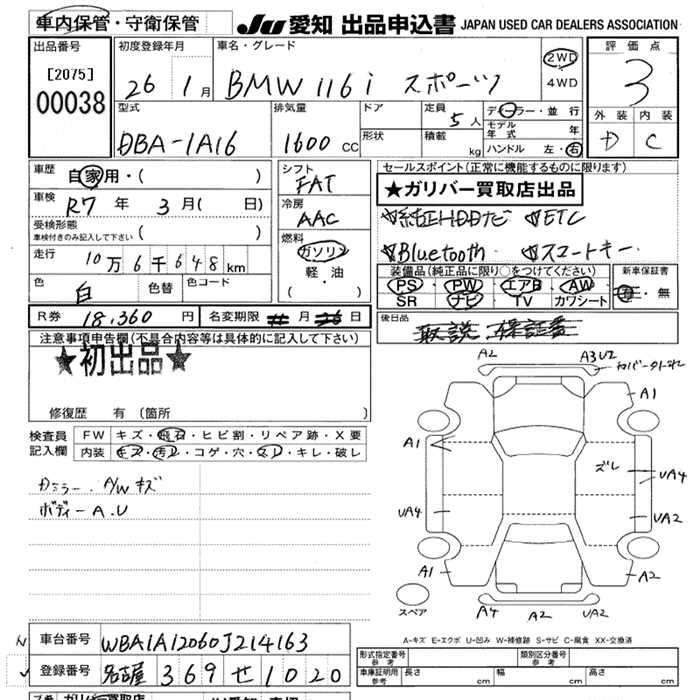 車内保管・守衛保管
JU 愛知 出品申込書 JAPAN USED CAR DEALERS ASSOCIATION
出品番号
[2075]
00038
初度登録年月
26 1月
車名・グレード
BMW 116i スポーツ
2WD
4WD
評価点
3
外装 内装
D C
型式
DBA-1A16
排気量
1600 cc
ドア
形状
定員
5人
積載
kg
ディーラー・並行
モデル年式 年
ハンドル 左・右
車歴
自家用・( )
車検
R7 年 3月( 日)
受検形態
車検付きのみ記入して下さい ( )
走行
10万6千648km
色
白
色替
色コード
シフト
FAT
冷房
AAC
燃料
ガソリン
軽・油
( )
セールスポイント(正常に機能するものに限ります)
★ガリバー買取店出品
☆純正HDDナビ ☆ETC
☆Bluetooth ☆スマートキー
装備品(純正品に限り○をつけてください)
PS PW エアB AW
SR ナビ TV カワシート
新車保証書
有・無
R券 18,360円
名変期限 月 26日
後日品
取説 保証書
注意事項申告欄(不具合内容等は具体的に記入して下さい)
★初出品★
修復歴 有(箇所 )
検査員記入欄
FW キズ・飛石・ヒビ割・リペア跡・X要
内装 キズ・汚レ・コゲ・穴・スレ・キレ・破レ
Dミラー. A/W キズ
ボディー A.U
A2
A3U2
カバークトれ
A1
A1
ズレ
UA4
UA4
UA2
A1
A2
スペア
A4
A2
UA2
A-キズ E-エクボ U-凹み W-補修跡 S-サビ C-腐食 XX-交換済
車台番号
WBA1A12060J214163
登録番号
名古屋 369 せ 1020
形式指定番号
参考
類別区分番号
参考
車庫証明用
参考
長さ cm
幅 cm
高さ cm